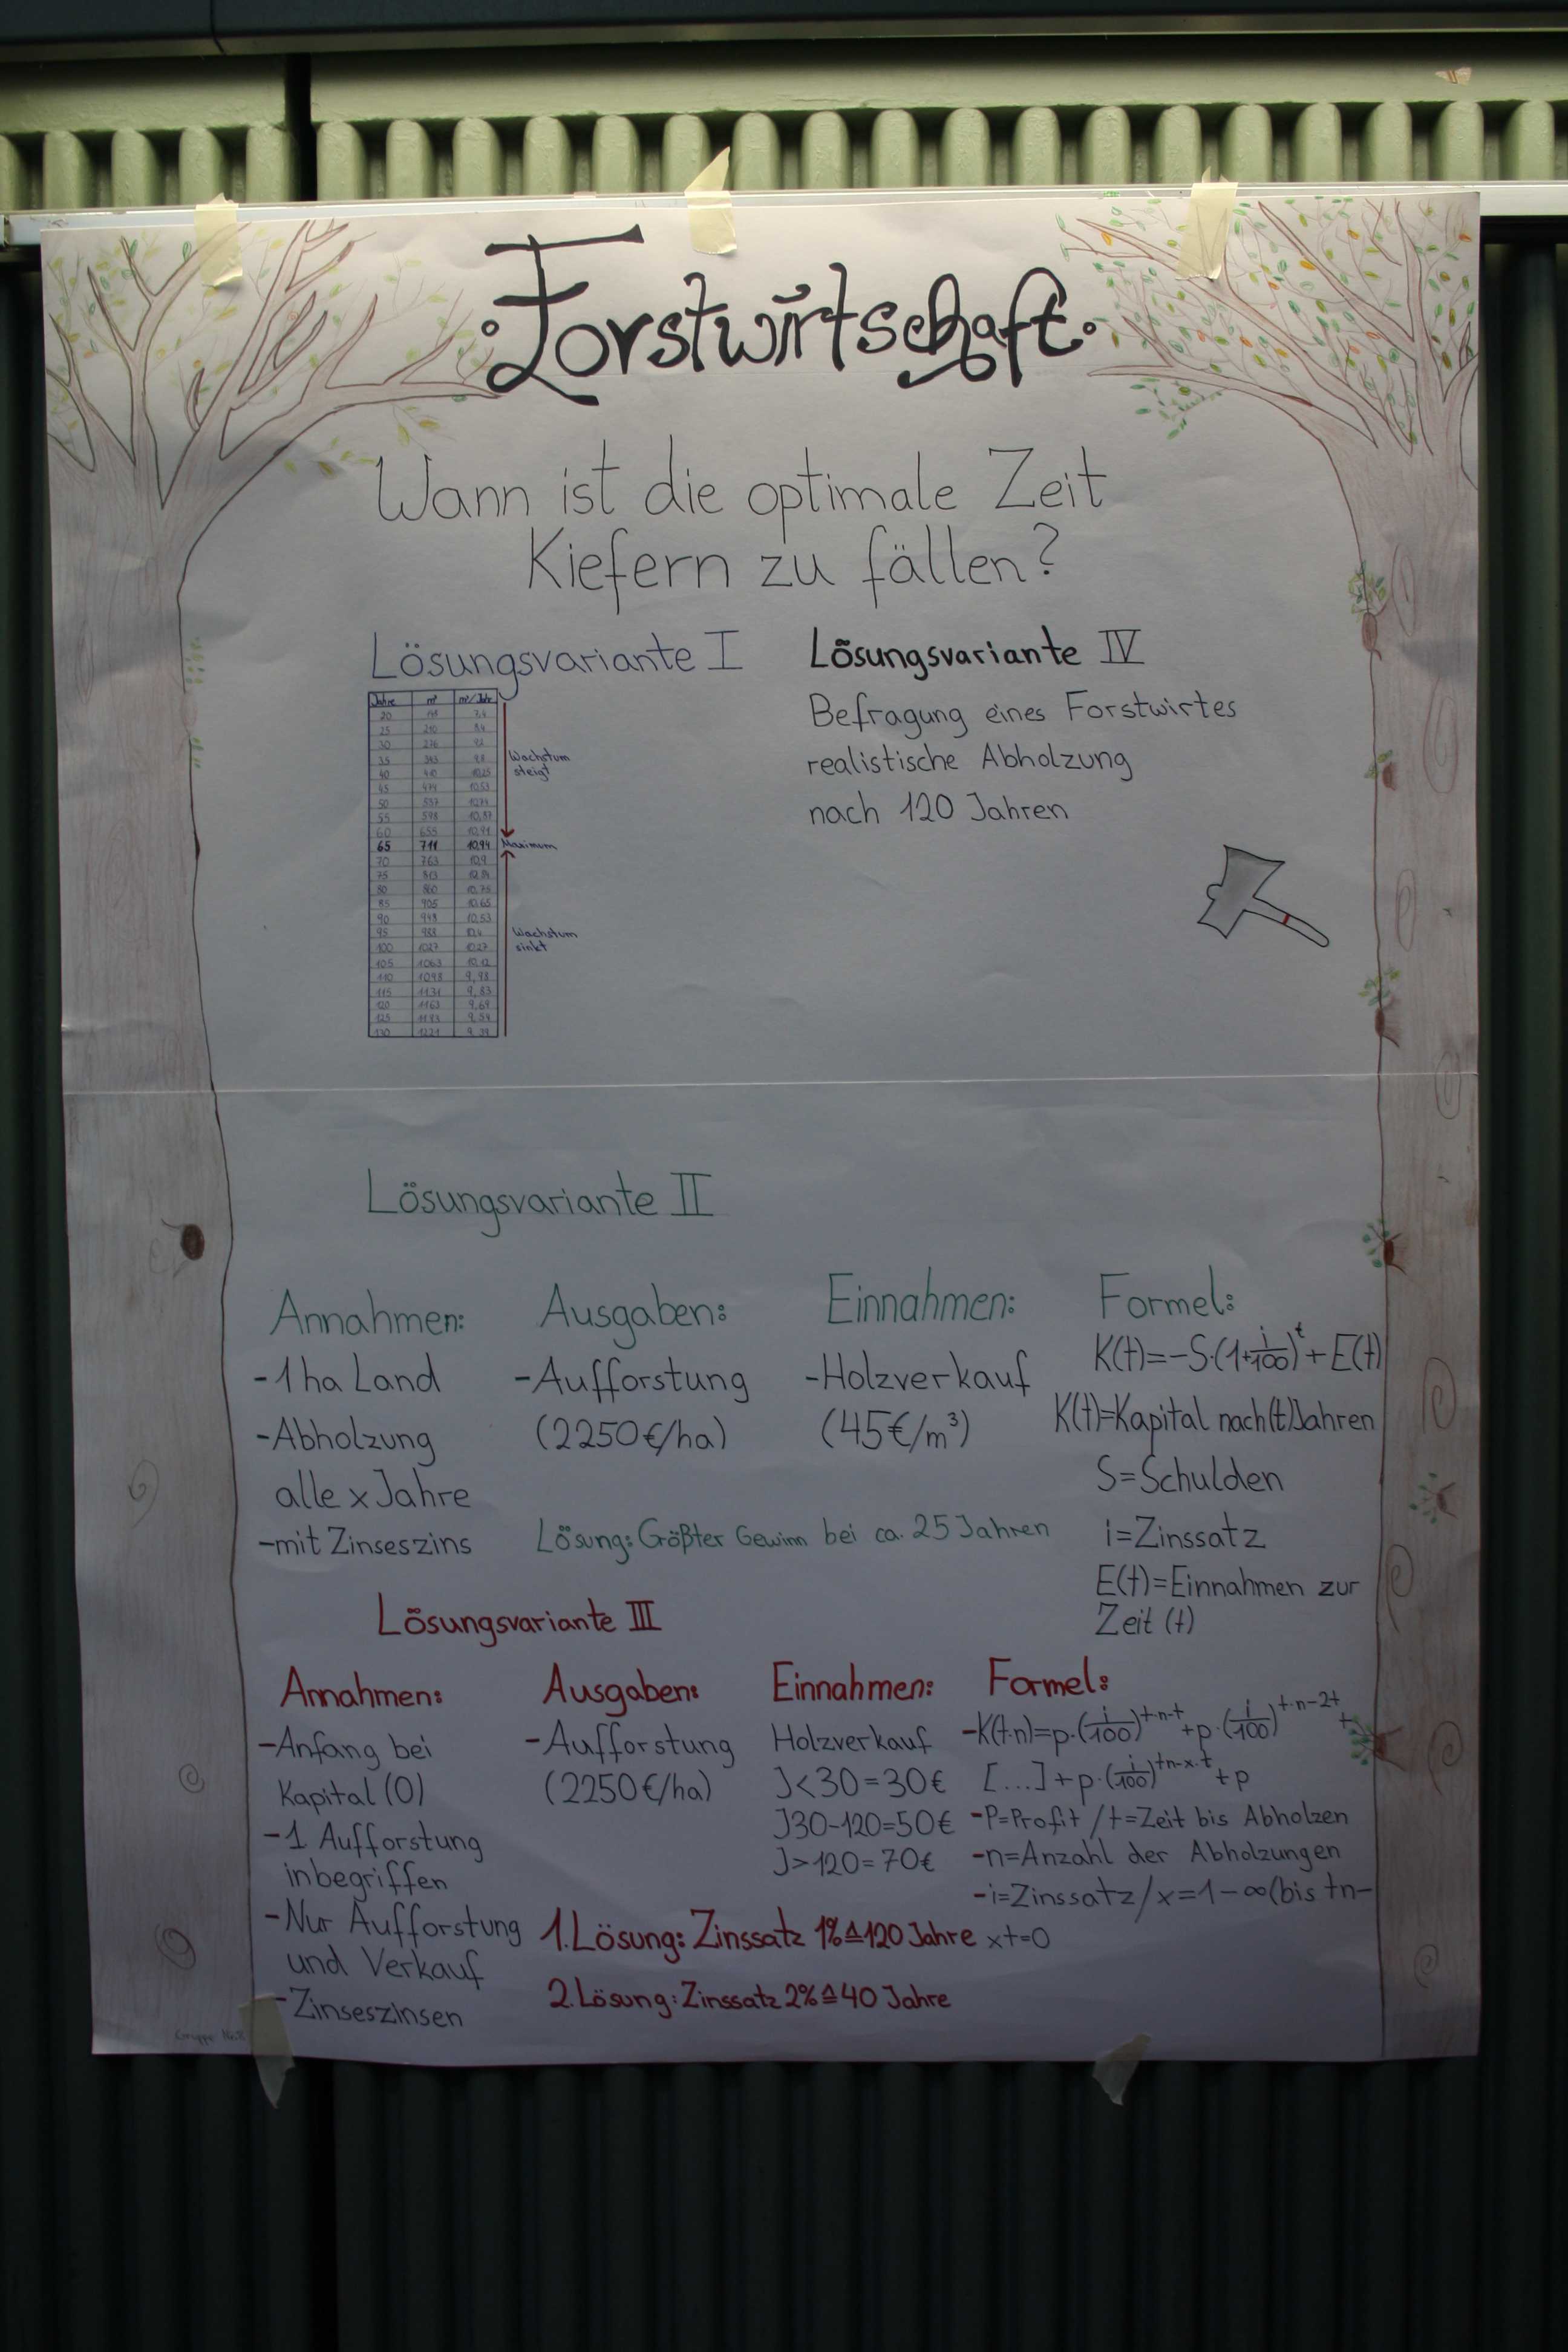 Forstwirtschaft
Wann ist die optimale Zeit
Kiefern zu fällen?
Lösungsvariante I
Jahre m³ m³/Jahr
20 148 7,4
25 210 8,4
30 276 9,2
35 343 9,8
40 410 10,25
45 474 10,53
50 537 10,74
55 598 10,87
60 655 10,91
65 711 10,94
70 763 10,9
75 813 10,84
80 860 10,75
85 905 10,65
90 948 10,53
95 988 10,4
100 1027 10,27
105 1063 10,12
110 1098 9,98
115 1131 9,83
120 1163 9,69
125 1193 9,54
130 1221 9,39
Wachstum
steigt
Maximum
Wachstum
sinkt
Lösungsvariante IV
Befragung eines Forstwirtes
realistische Abholzung
nach 120 Jahren
Lösungsvariante II
Annahmen:
-1 ha Land
-Abholzung
alle x Jahre
-mit Zinseszins
Ausgaben:
-Aufforstung
(2250€/ha)
Einnahmen:
-Holzverkauf
(45€/m³)
Lösung: Größter Gewinn bei ca. 25 Jahren
Formel:
K(t)=-S·(1+i/100)^t+E(t)
K(t)=Kapital nach(t)Jahren
S=Schulden
i=Zinssatz
E(t)=Einnahmen zur
Zeit (t)
Lösungsvariante III
Annahmen:
-Anfang bei
Kapital (0)
-1 Aufforstung
inbegriffen
-Nur Aufforstung
und Verkauf
-Zinseszinsen
Ausgaben:
-Aufforstung
(2250€/ha)
Einnahmen:
Holzverkauf
J<30=30€
J30-120=50€
J>120=70€
Formel:
-K(t·n)=p·(i/100)^t·n-t+p·(i/100)^t·n-2t+
[...]+p·(i/100)^tn-x·t+p
-P=Profit/t=Zeit bis Abholzen
-n=Anzahl der Abholzungen
-i=Zinssatz/x=1-∞(bis tn-
xt=0
1.Lösung: Zinssatz 1%≙120 Jahre
2.Lösung: Zinssatz 2%≙40 Jahre
Gruppe